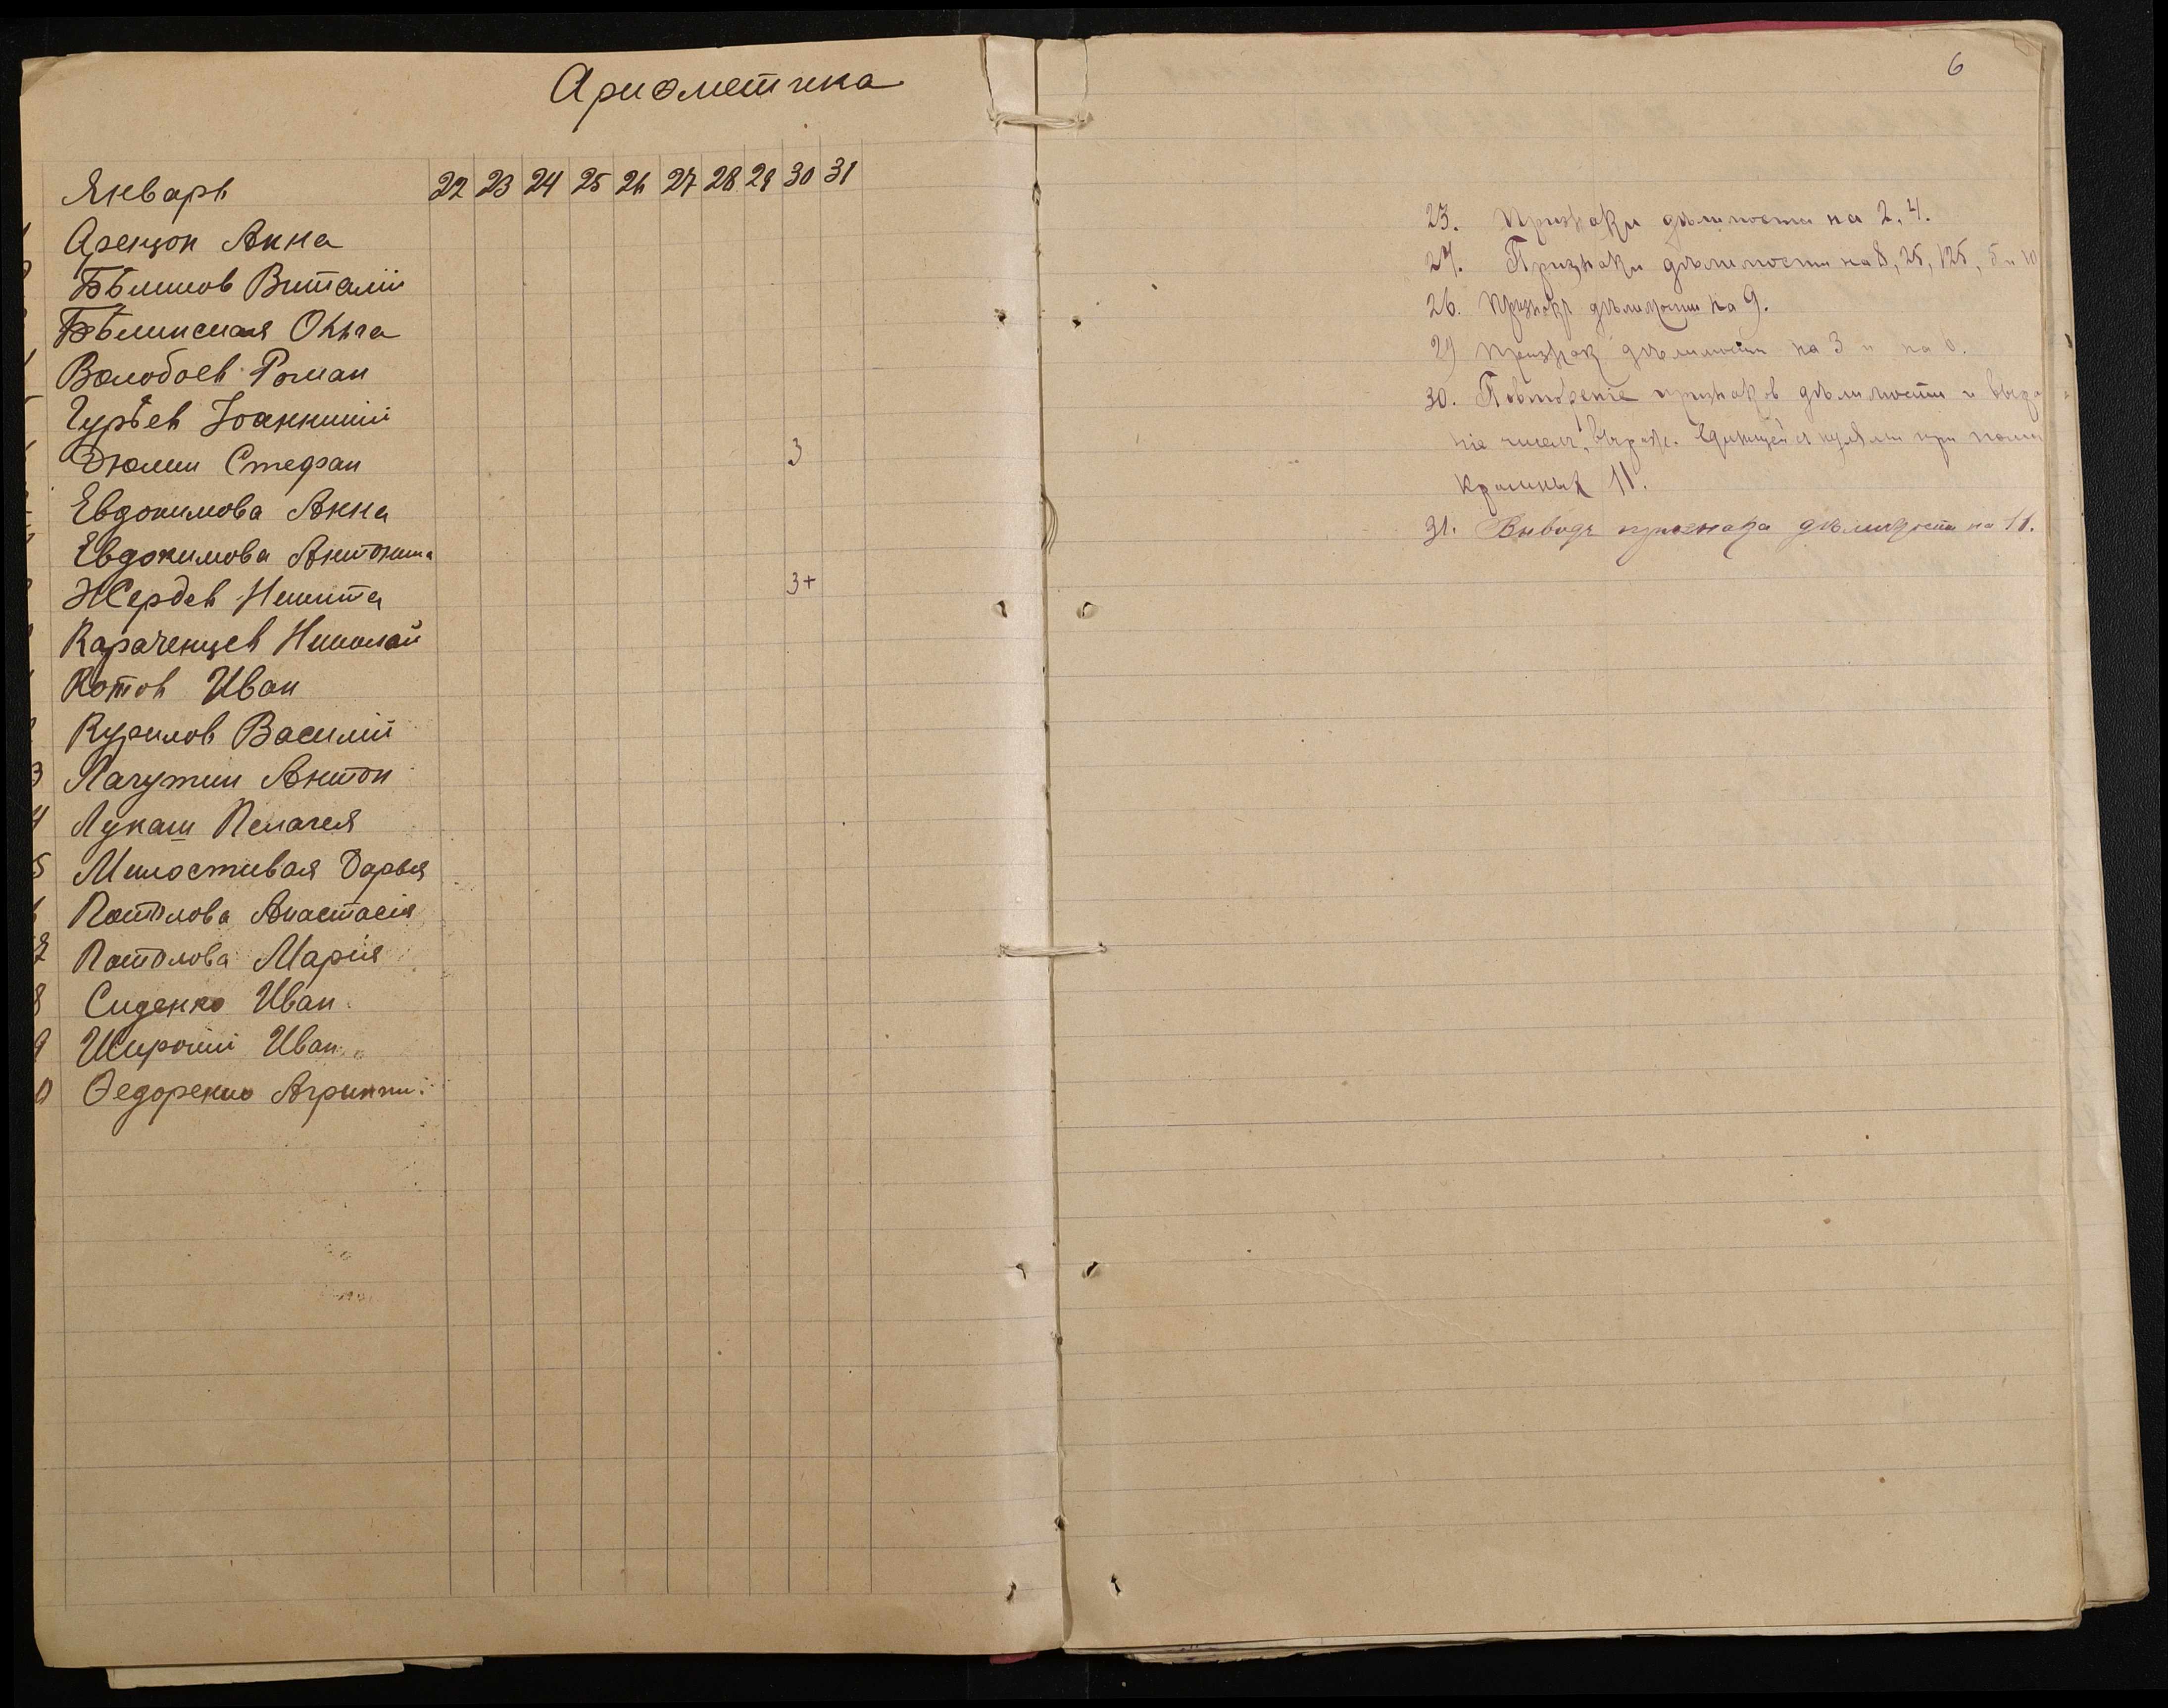 Ариѳметика
Январь 22 23 24 25 26 27 28 29 30 31
Аренцон Анна
Бѣликов Виталій
Бѣлинская Ольга
Волобоев Роман
Гурьев Іоанникій
Дюмин Стефан 3
Евдокимова Анна
Евдокимова Антонина
Жердев Никита 3+
Караченцев Николай
Котов Иван
Курилов Василій
3 Лагутин Антон
4 Лукаш Пелагея
5 Милостивая Дарья
Потолова Анастасія
7 Потолова Марія
8 Сиденко Иван
9 Широкій Иван
0 Ѳедоренко Агриппи.
6
23. Признаки дѣлимости на 2, 4.
24. Признаки дѣлимости на 8, 25, 125, 5 и 10
26. Признакъ дѣлимости на 9.
29 Признак дѣлимости на 3 и на 6.
30. Повтореніе признаков дѣлимости и
ніе чисел, выраж. единицей с нулями при
кратных 11.
31. Выводъ признака дѣлимости на 11.